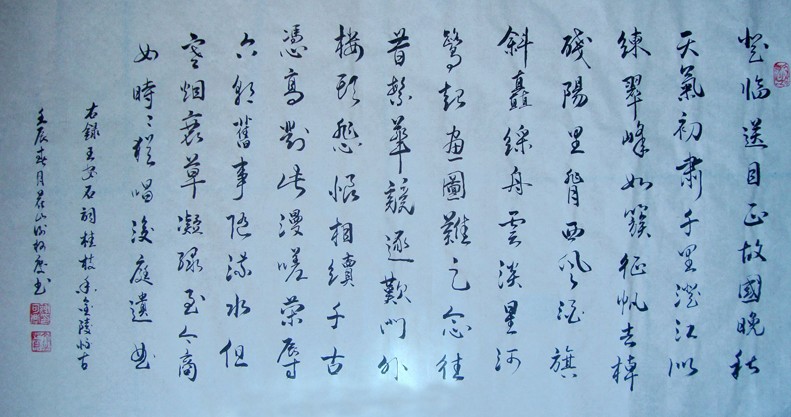 登临送目正故國晚秋
天氣初肅千里澄江似
練翠峰如簇征帆去棹
殘陽里背西风酒旗
斜矗綵舟雲淡星河
鷺起畫圖難足念往
昔繁華競逐歎門外
楼頭悲恨相續千古
憑高對此漫嗟榮辱
六朝舊事随流水但
寒烟衰草凝绿至今商
女時〻猶唱後庭遺曲
右錄王安石词桂枝香金陵怀古
壬辰春月君山